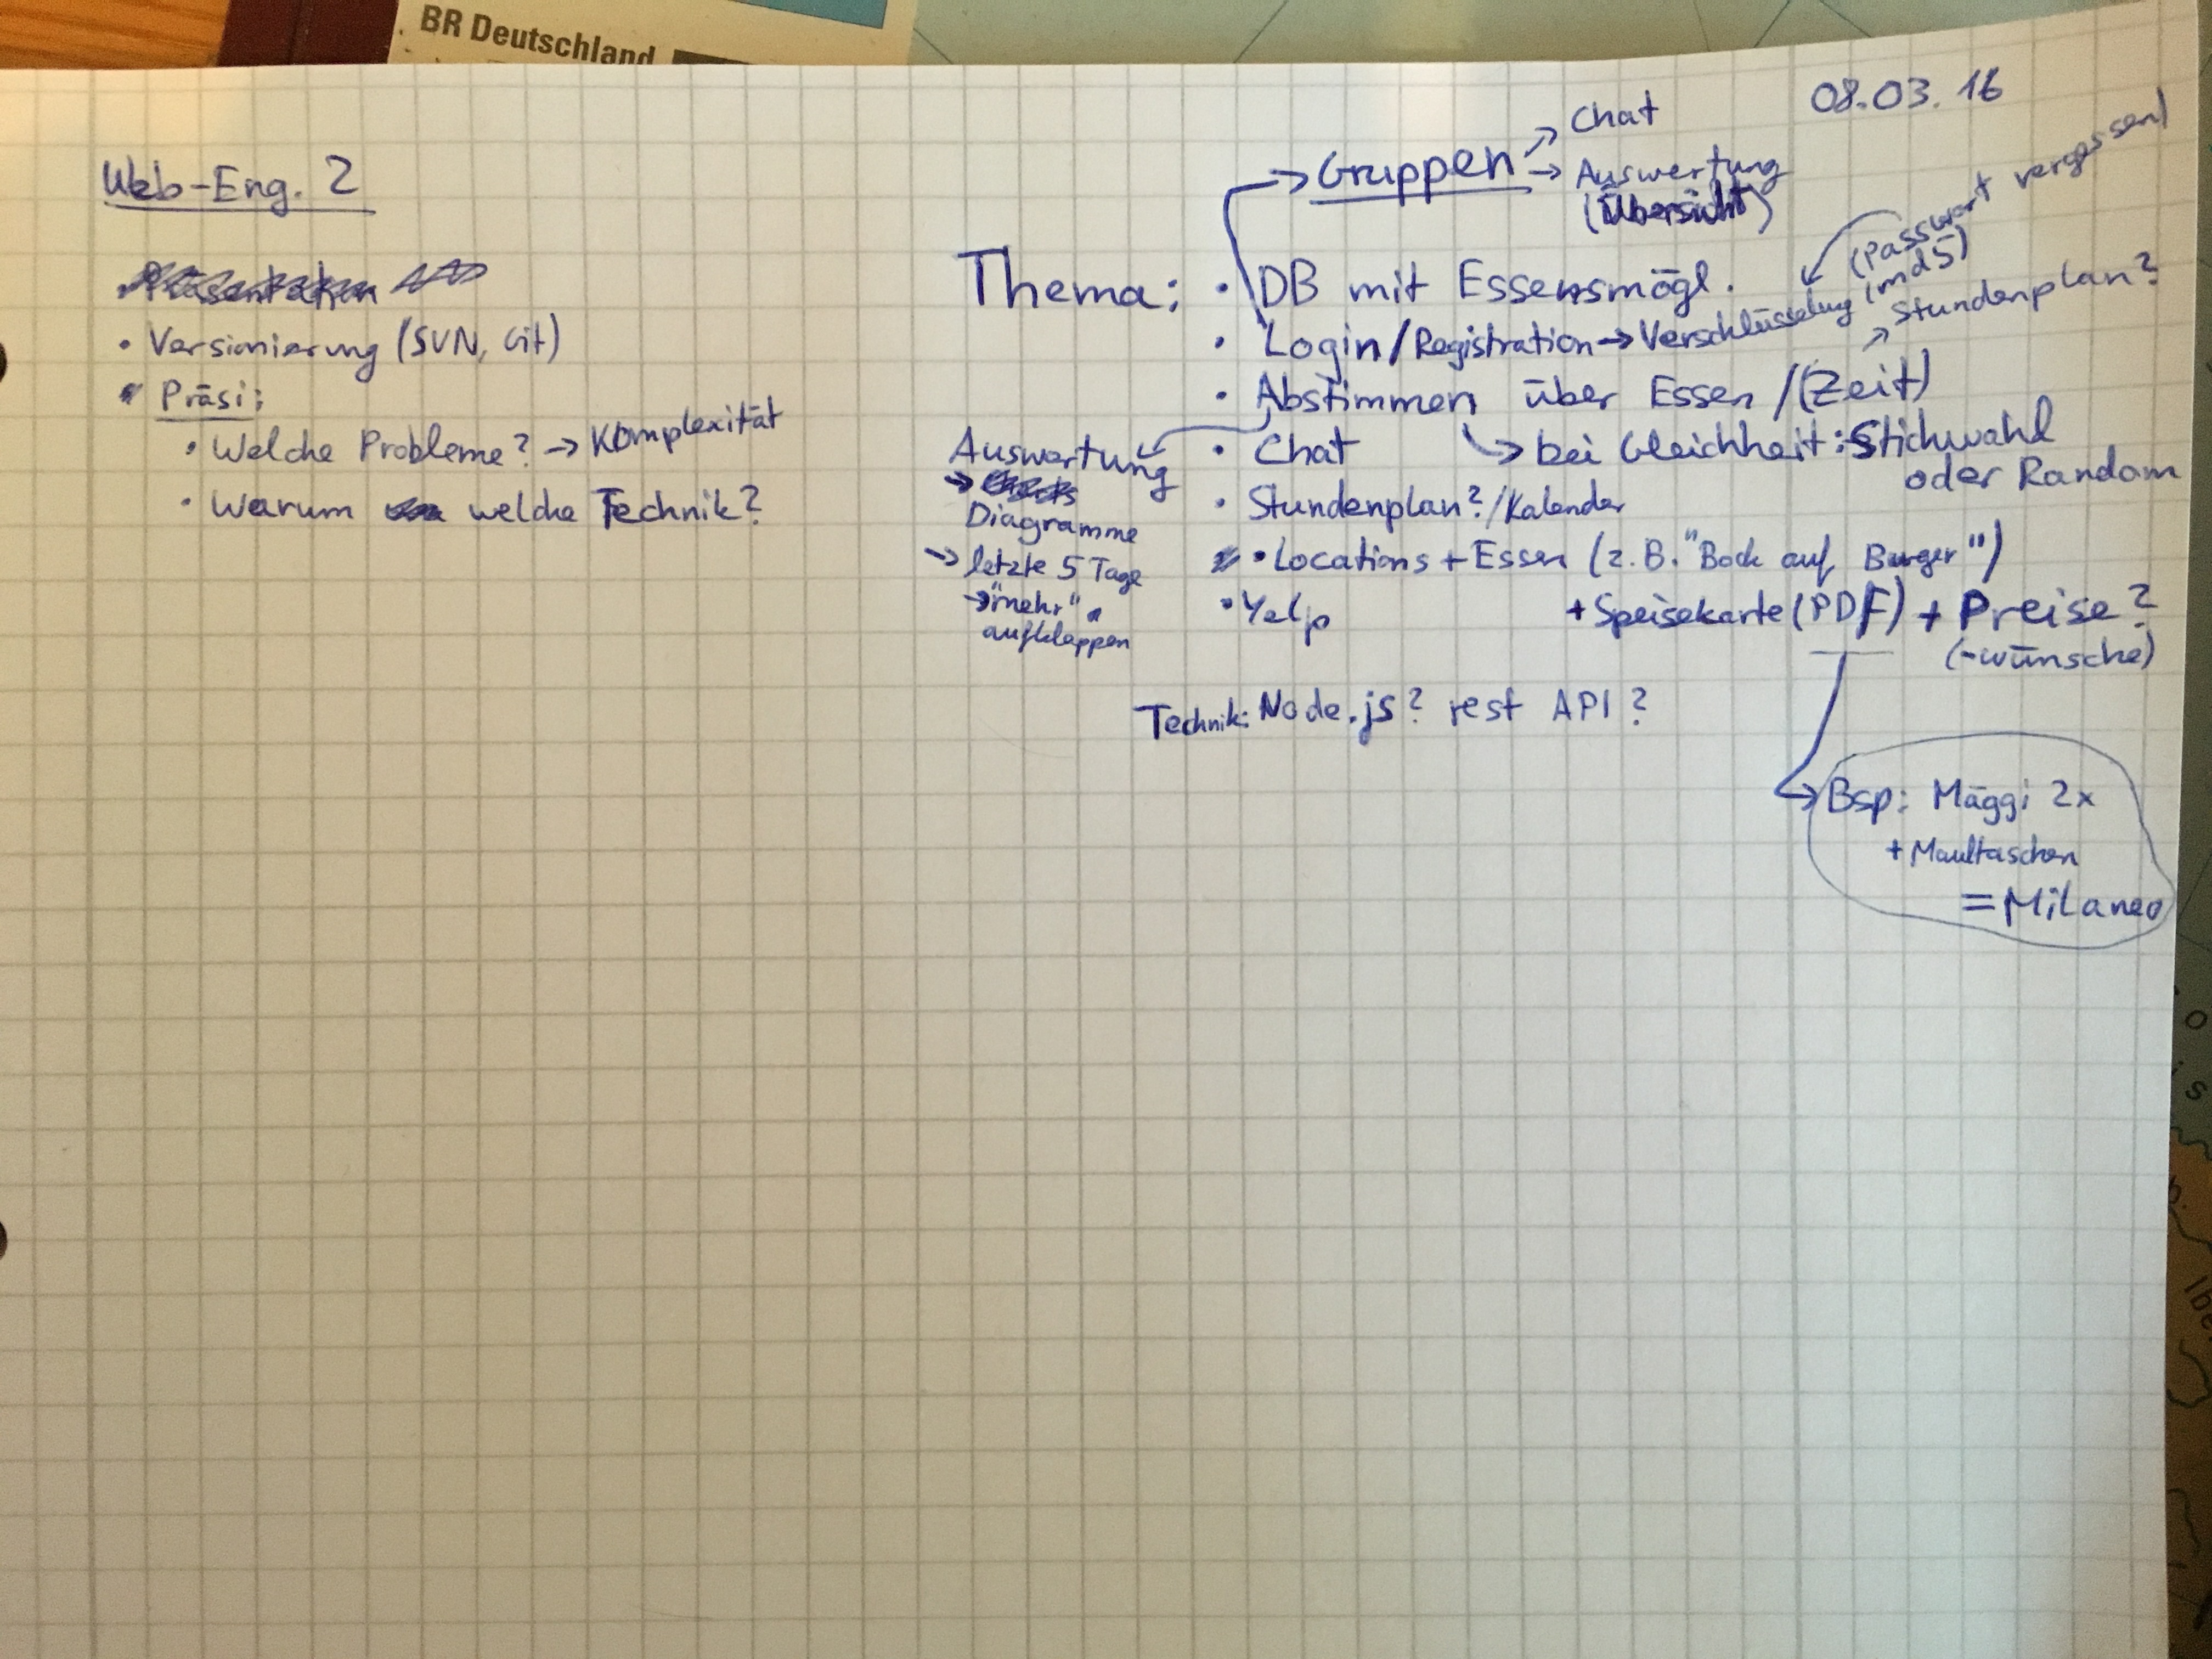 BR Deutschland
08.03.16
Web-Eng. 2
• Versionierung (SVN, Git)
Präsi:
• Welche Probleme? → Komplexität
• Warum welche Technik?
→ Gruppen → Chat
→ Auswertung
(Übersicht)
Thema: • DB mit Essensmögl.
• Login/Registration → Verschlüsselung (md5)
(Passwort vergessen)
• Abstimmen über Essen /(Zeit)
→ Stundenplan?
→ bei Gleichheit: Stichwahl
oder Random
• Chat
• Stundenplan?/Kalender
• Locations + Essen (z.B. "Bock auf Burger")
+ Speisekarte (PDF) + Preise?
(-wünsche)
• Yelp
Auswertung
→ Diagramme
→ letzte 5 Tage
→ "mehr"
aufklappen
Technik: Node.js? rest API?
→ Bsp: Mäggi 2x
+ Maultaschen
= Milaneo